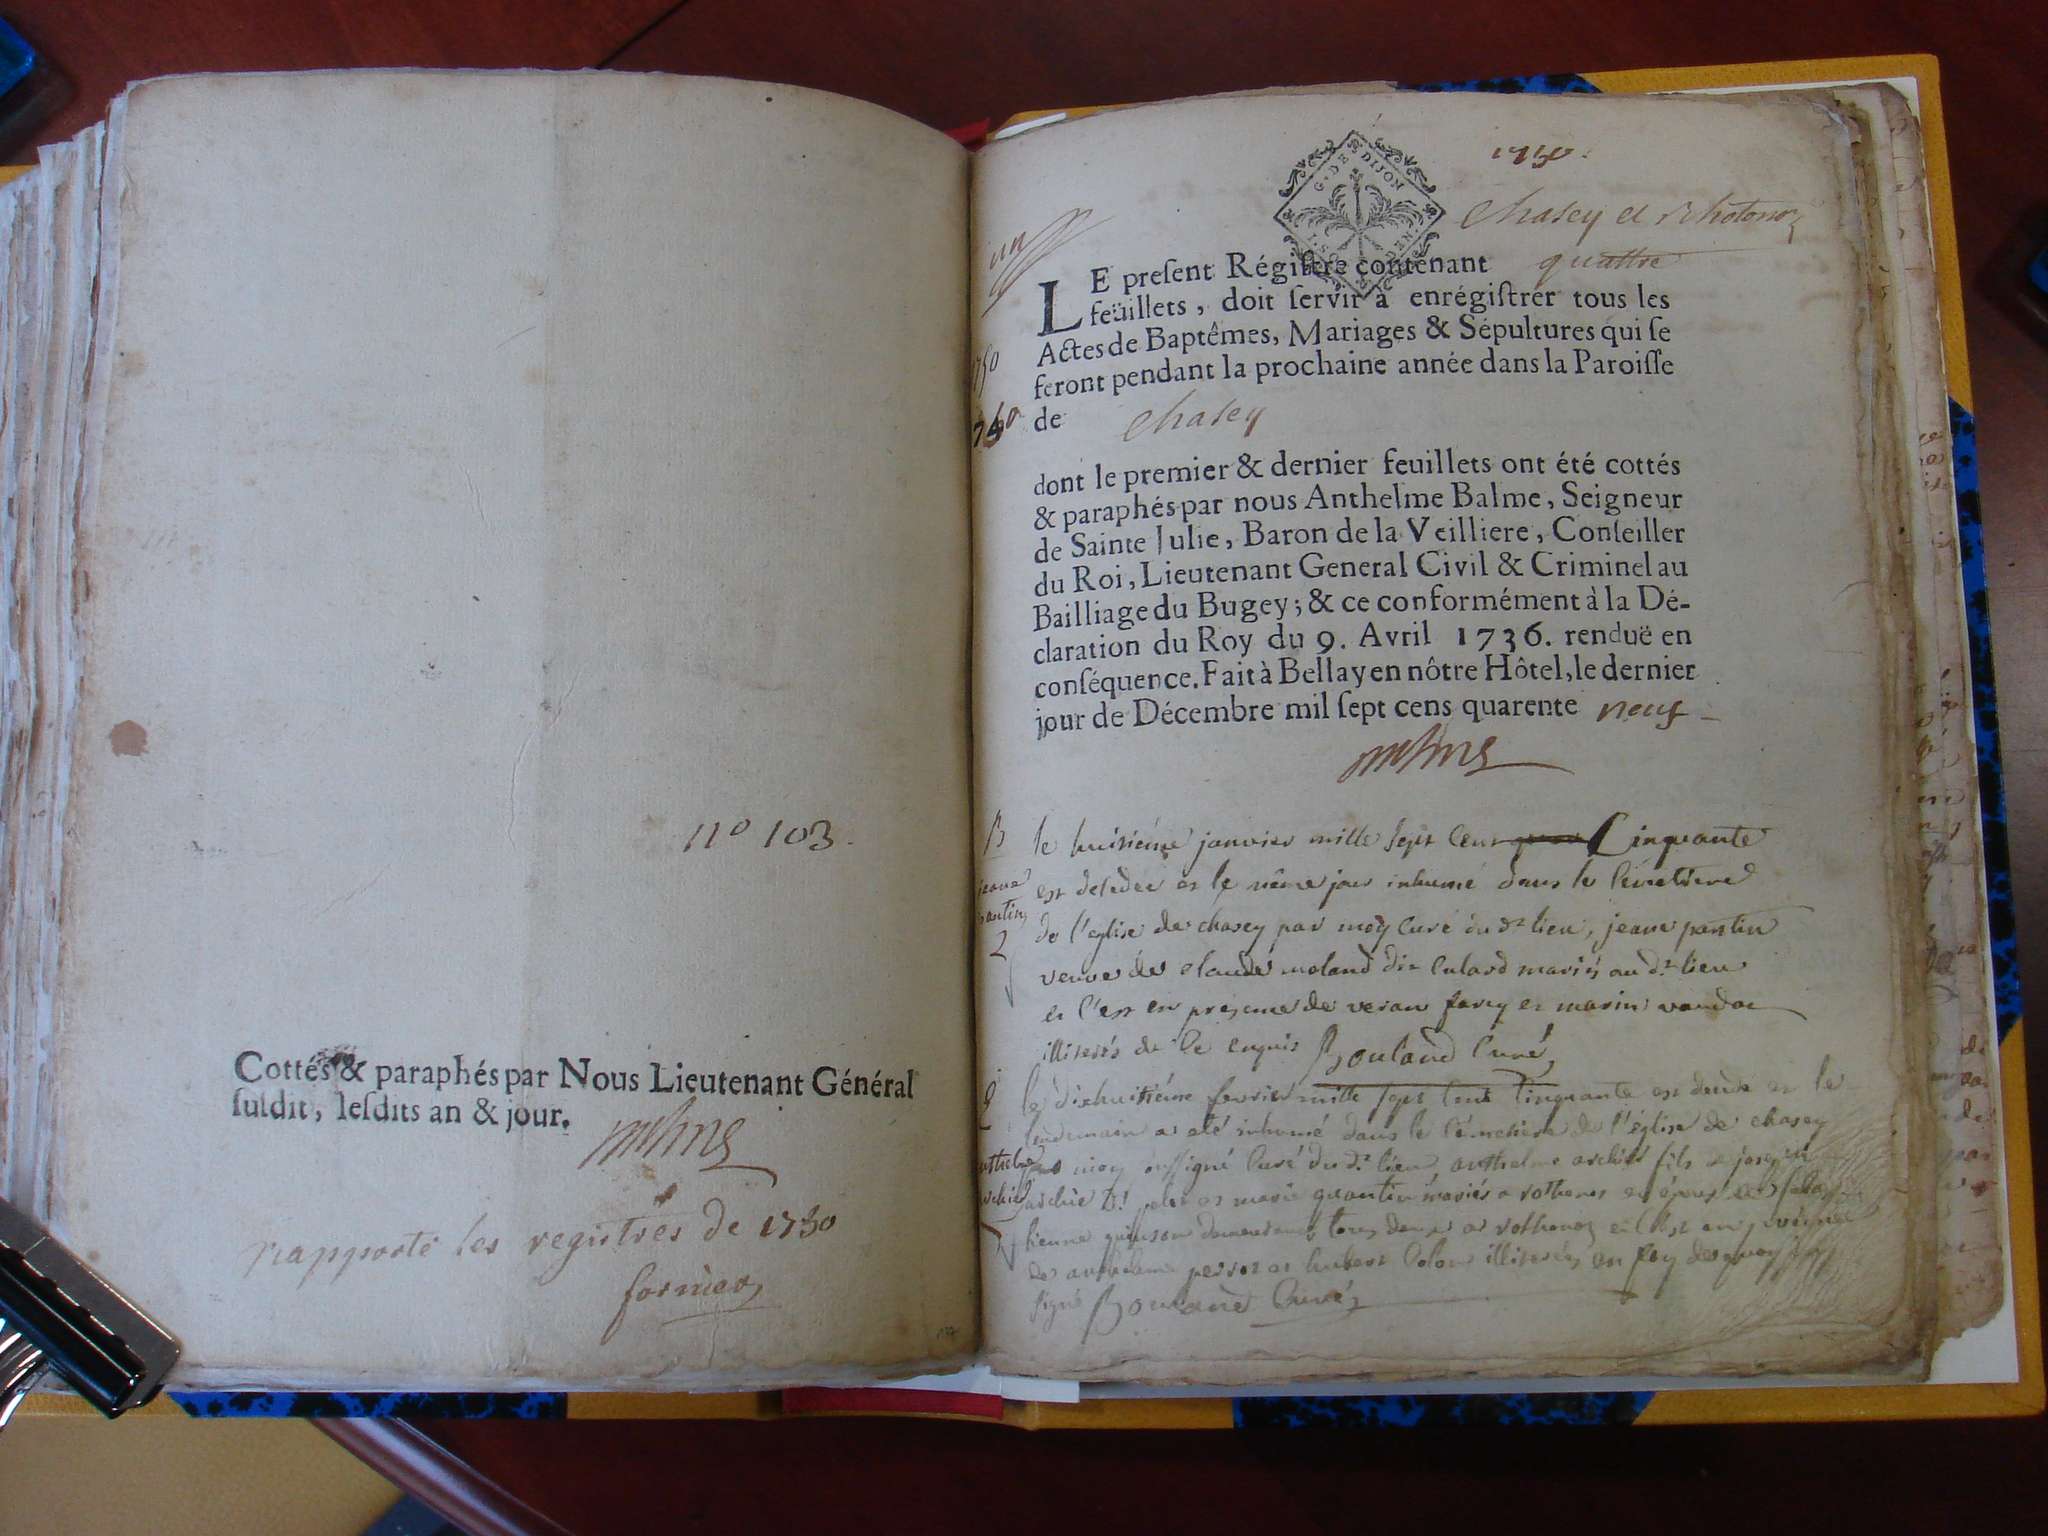 n° 103.
Cottés & paraphés par Nous Lieutenant Général
susdit, lesdits an & jour.
rapporté les registres de 1750
1750.
G. DE DIJON
Chasey et Rhotonod
un
LE present Régistre contenant quattre
feüillets, doit servir à enrégistrer tous les
Actes de Baptêmes, Mariages & Sépultures qui se
feront pendant la prochaine année dans la Paroisse
de Chasey
1750
dont le premier & dernier feuillets ont été cottés
& paraphés par nous Anthelme Balme, Seigneur
de Sainte Julie, Baron de la Veilliere, Conseiller
du Roi, Lieutenant General Civil & Criminel au
Bailliage du Bugey; & ce conformément à la Dé-
claration du Roy du 9. Avril 1736. renduë en
conséquence. Fait à Bellay en nôtre Hôtel, le dernier
jour de Décembre mil sept cens quarente neuf
jeane
pantin
2
le huitiéme janvier mille sept cent Cinquante
est decedee et le même jour inhumé dans le Cimetiere
de l'eglise de chasey par moy Curé du dt lieu, jeane pantin
veuve de claude moland dit Culard mariés au dt lieu
et c'est en presence de veran farcy et marin
illiterés de ce enquis Bouland Curé
le dixhuitiéme fevrier mille sept Cent Cinquante est decede et le
lendemain a eté inhumé dans le Cémetiere de l'église de chasey
par moy soussigné Curé du dt lieu anthelme archier fils de joseph
et marie quantin mariés a rothonod
demeurant tous deux a rothonod et c'est en presence
de anthelme perret et hubert Colom illiterés en foy de quoy j'ay
signé Bouland Curé